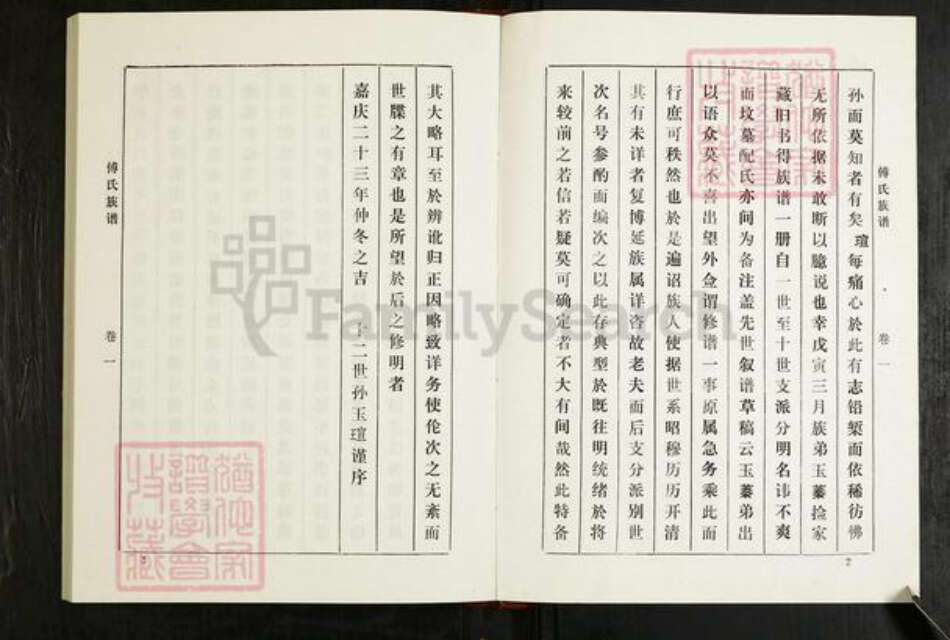 傅氏族谱
卷一
孙而莫知者有矣瑄每痛心於此有志铅椠而依稀彷佛
无所依据未敢断以臆说也幸戊寅三月族弟玉蓁捡家
藏旧书得族谱一册自一世至十世支派分明名讳不爽
而坟墓配氏亦间为备注盖先世叙谱草稿云玉蓁弟出
以语众莫不喜出望外佥谓修谱一事原属急务乘此而
行庶可秩然也於是遍诏族人使据世系昭穆历历开清
其有未详者复博延族属详咨故老夫而后支分派别世
次名号参酌而编次之以此存典型於既往明统绪於将
来较前之若信若疑莫可确定者不大有间哉然此特备
2
其大略耳至於辨讹归正因略致详务使伦次之无紊而
世牒之有章也是所望於后之修明者
嘉庆二十三年仲冬之吉 十二世孙玉瑄谨序
傅氏族谱
卷一
FamilySearch